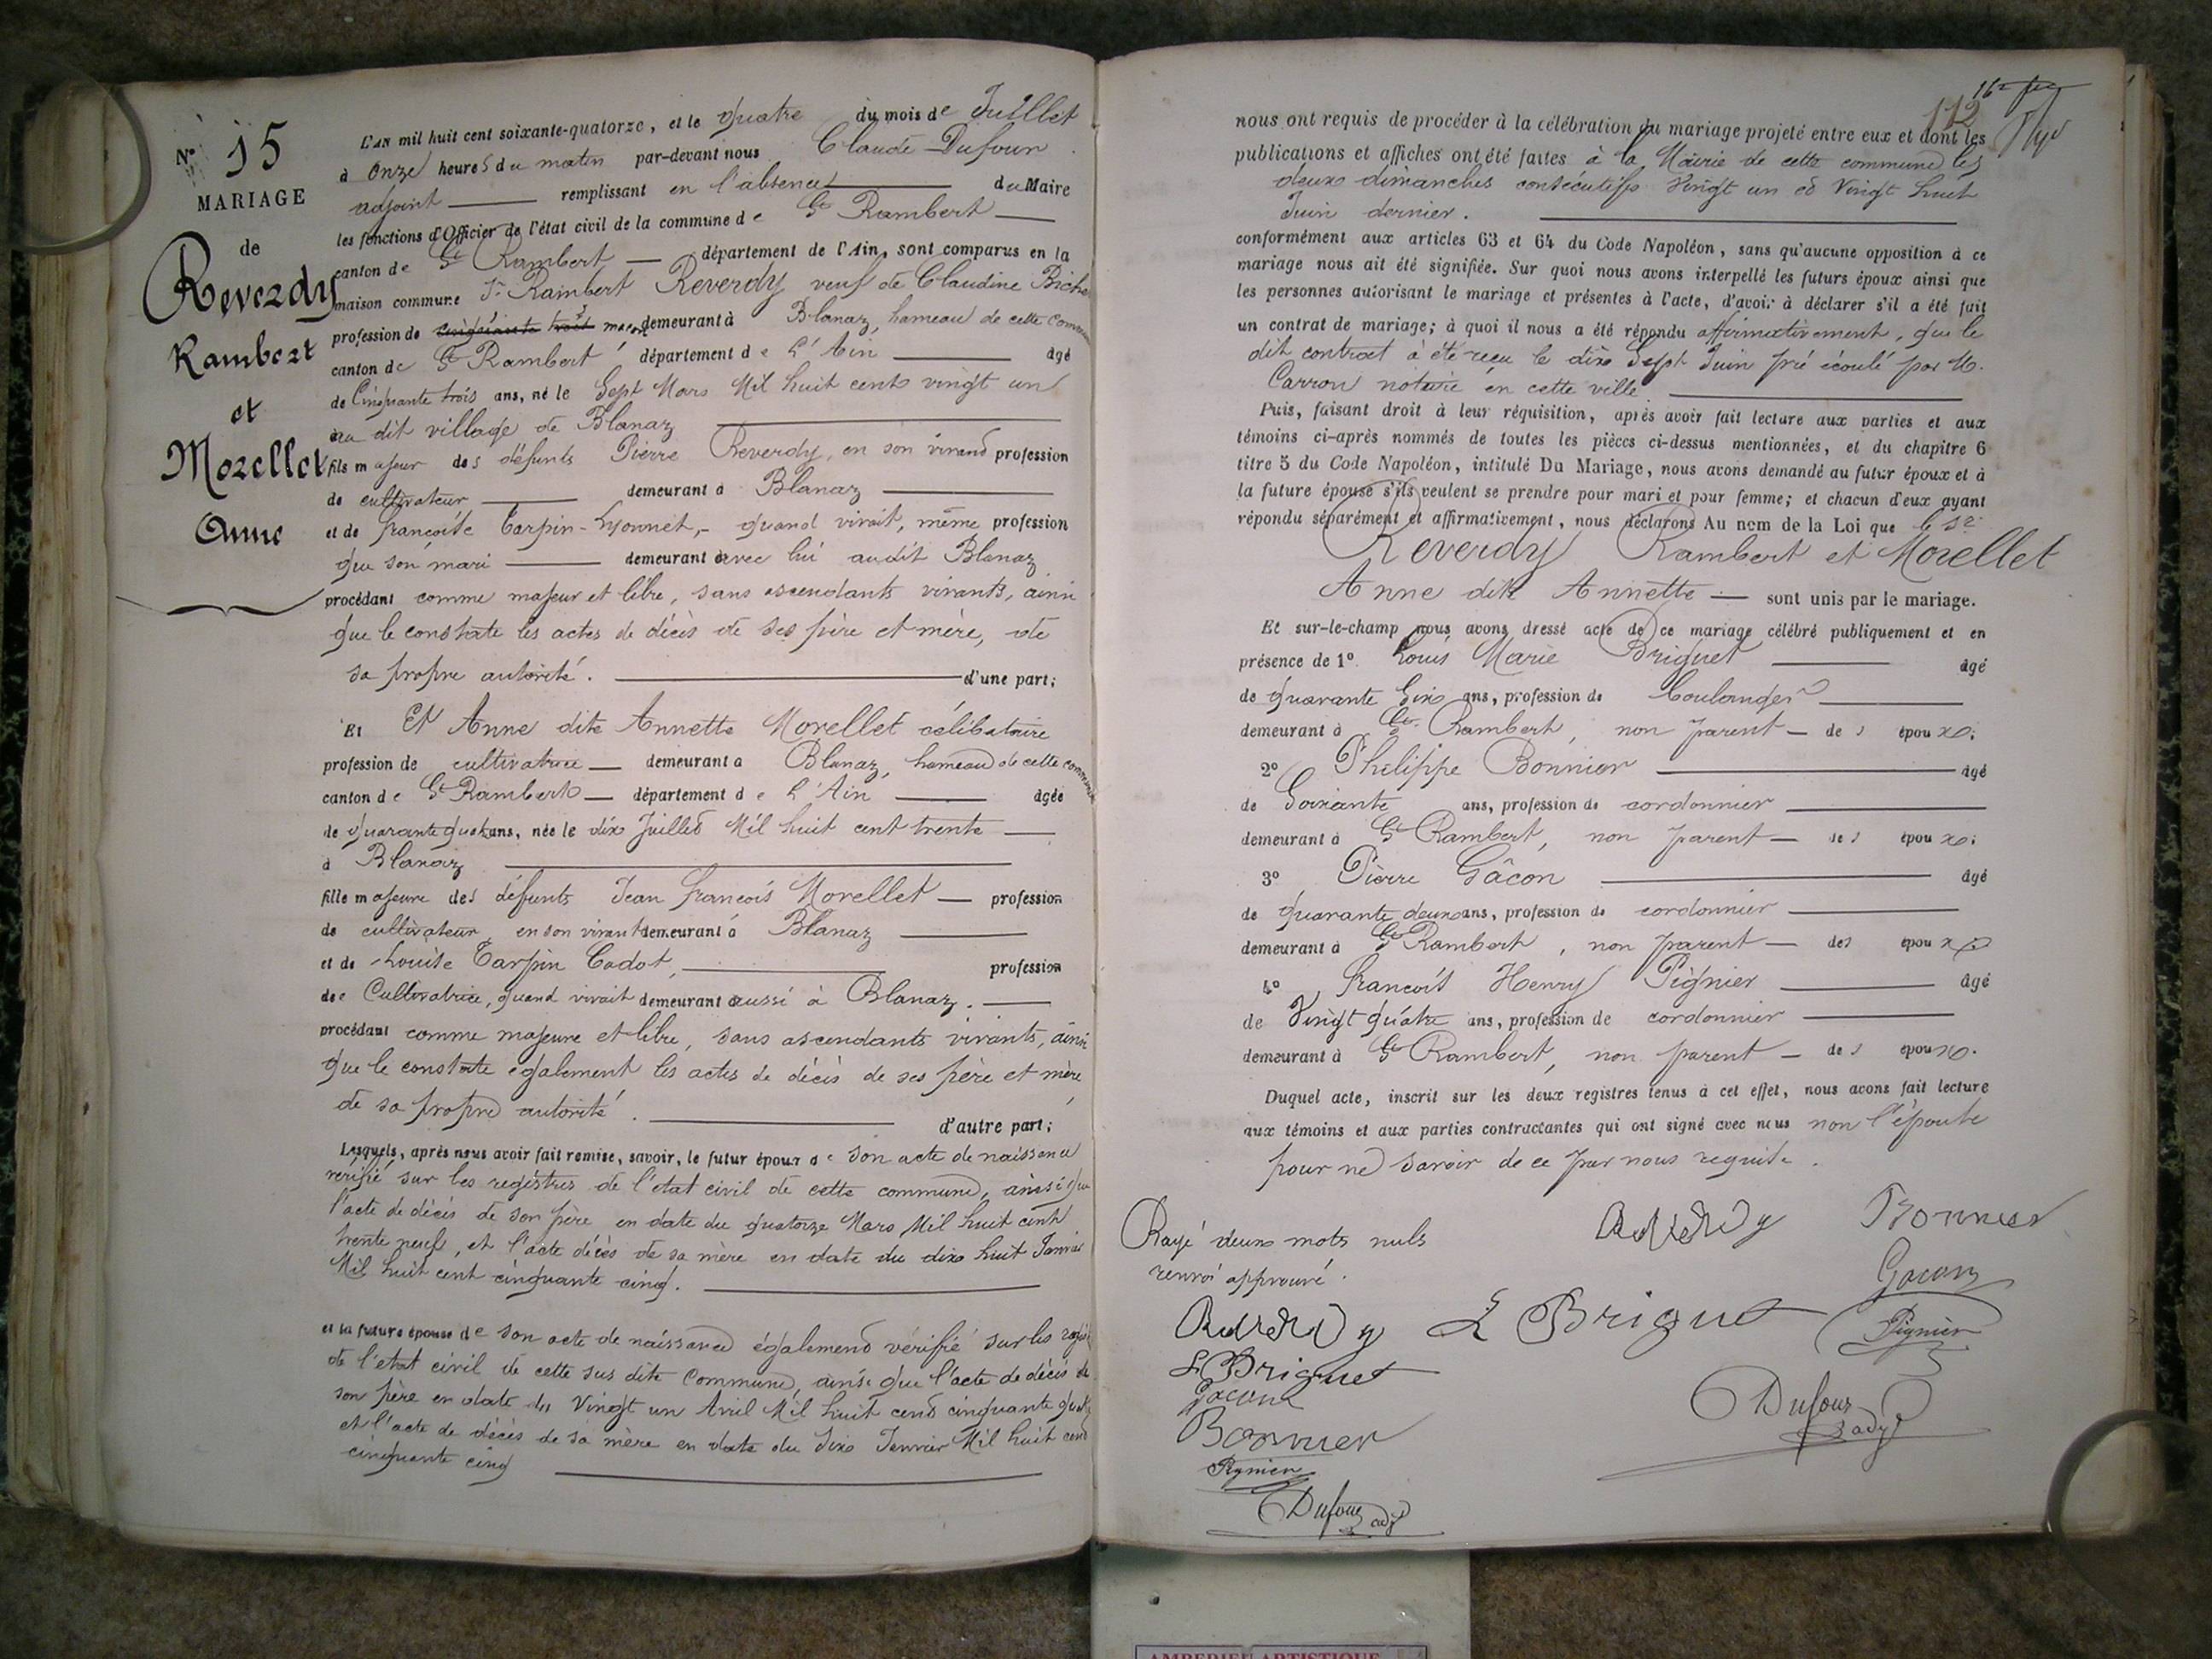 N° 15
MARIAGE
de
Reverdy
Rambert
et
Morellet
Anne
L'AN mil huit cent soixante-quatorze, et le quatre du mois de Juillet
à onze heures du matin par-devant nous Claude Dufour
adjoint remplissant en l'absence du Maire
les fonctions d'Officier de l'état civil de la commune de St Rambert
canton de St Rambert département de l'Ain, sont comparus en la
maison commune St Rambert Reverdy veuf de Claudine Biche
profession de cinquante trois maçon demeurant à Blanaz, hameau de cette commune
canton de St Rambert département de l'Ain âgé
de Cinquante trois ans, né le Sept Mars Mil huit cent vingt un
au dit village de Blanaz
fils majeur des défunts Pierre Reverdy, en son vivant profession
de cultivateur demeurant à Blanaz
et de françoise Tarpin-Lyonnet, quand vivait, même profession
que son mari demeurant avec lui audit Blanaz
procédant comme majeur et libre, sans ascendants vivants, ainsi
que le constate les actes de décès de ses père et mère, de
sa propre autorité. d'une part;
Et Et Anne dite Annette Morellet célibataire
profession de cultivatrice demeurant à Blanaz, hameau de cette commune
canton de St Rambert département de l'Ain âgée
de quarante quatre ans, née le dix Juillet Mil huit cent trente
à Blanaz
fille majeure des défunts Jean françois Morellet profession
de cultivateur en son vivant demeurant à Blanaz
et de Louise Tarpin Cadot, profession
de Cultivatrice, quand vivait demeurant aussi à Blanaz.
procédant comme majeure et libre, sans ascendants vivants, ainsi
que le constate également les actes de décès de ses père et mère,
de sa propre autorité. d'autre part;
Lesquels, après nous avoir fait remise, savoir, le futur époux de son acte de naissance
vérifié sur les registres de l'état civil de cette commune, ainsi que
l'acte de décès de son père en date du quatorze Mars Mil huit cent
trente neuf, et l'acte décès de sa mère en date du dix huit Janvier
Mil huit cent cinquante cinq.
et la future épouse de son acte de naissance également vérifié sur les
de l'état civil de cette sus dite Commune, ainsi que l'acte de décès de
son père en date du Vingt un Avril Mil huit cent cinquante quatre
et l'acte de décès de sa mère en date du dix Janvier Mil huit cent
cinquante cinq
112
nous ont requis de procéder à la célébration du mariage projeté entre eux et dont les
publications et affiches ont été faites à la Mairie de cette commune les
deux dimanches consécutifs Vingt un et Vingt huit
Juin dernier.
conformément aux articles 63 et 64 du Code Napoléon, sans qu'aucune opposition à ce
mariage nous ait été signifiée. Sur quoi nous avons interpellé les futurs époux ainsi que
les personnes autorisant le mariage et présentes à l'acte, d'avoir à déclarer s'il a été fait
un contrat de mariage; à quoi il nous a été répondu affirmativement, que le
dit contrat a été reçu le dix Sept Juin pré écoulé par M.
Carron notaire en cette ville
Puis, faisant droit à leur réquisition, après avoir fait lecture aux parties et aux
témoins ci-après nommés de toutes les pièces ci-dessus mentionnées, et du chapitre 6
titre 5 du Code Napoléon, intitulé Du Mariage, nous avons demandé au futur époux et à
la future épouse s'ils veulent se prendre pour mari et pour femme; et chacun d'eux ayant
répondu séparément et affirmativement, nous déclarons Au nom de la Loi que le Sr
Reverdy Rambert et Morellet
Anne dite Annette sont unis par le mariage.
Et sur-le-champ nous avons dressé acte de ce mariage célébré publiquement et en
présence de 1° Louis Marie Briguet âgé
de quarante Six ans, profession de boulanger
demeurant à St Rambert, non parent des époux;
2° Philippe Bonnier âgé
de Soixante ans, profession de cordonnier
demeurant à St Rambert, non parent des époux;
3° Pierre Gâcon âgé
de quarante deux ans, profession de cordonnier
demeurant à St Rambert, non parent des époux
4° françois Henry Pignier âgé
de Vingt quatre ans, profession de cordonnier
demeurant à St Rambert, non parent des époux.
Duquel acte, inscrit sur les deux registres tenus à cet effet, nous avons fait lecture
aux témoins et aux parties contractantes qui ont signé avec nous non l'épouse
pour ne savoir de ce par nous requise.
Rayé deux mots nuls
renvoi approuvé.
Reverdy Bonnier
Gacon
Reverdy L Briguet Pignier
L Briguet
Gacon
Dufour adj
Bonnier
Pignier
Dufour adj
AMBERIEU ARTISTIQUE